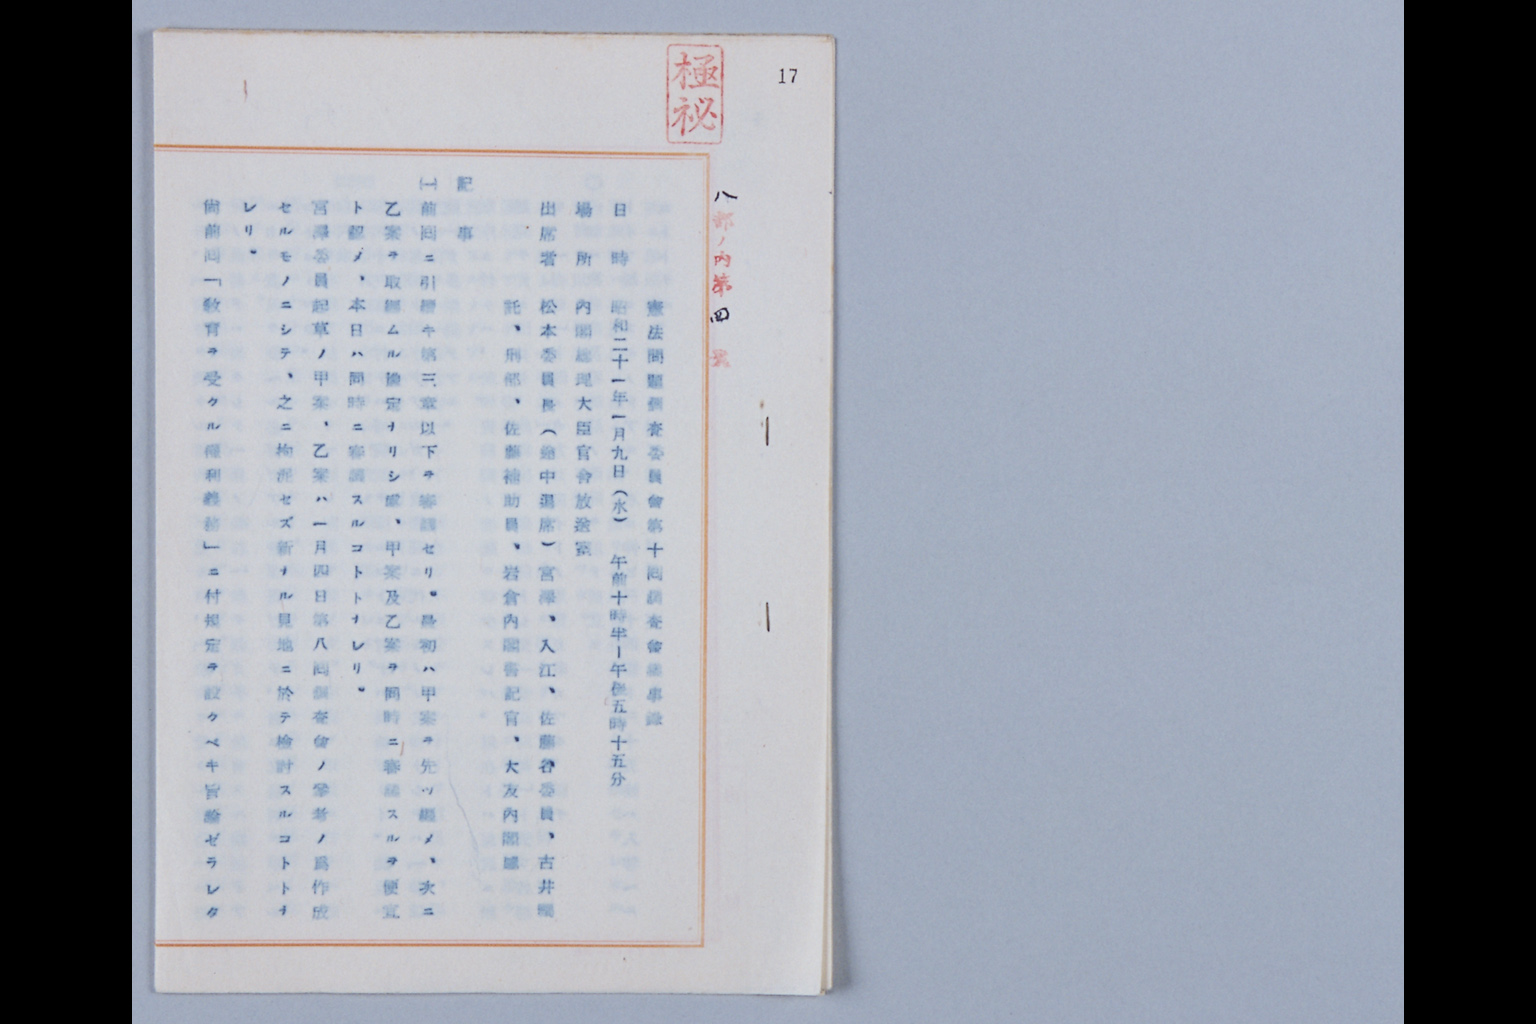 17
極秘
八部ノ内第四號
憲法問題調査委員會第十回調査會議事錄
日時 昭和二十一年一月九日(水) 午前十時半ー午後五時十五分
場所 內閣總理大臣官舍放送室
出席者 松本委員長(途中退席)宮澤、入江、佐藤各委員、古井囑
託、刑部、佐藤補助員、岩倉內閣書記官、大友內閣囑
記事
㈠ 前回ニ引續キ第三章以下ヲ審議セリ。最初ハ甲案ヲ先ッ纒メ、次ニ
乙案ヲ取纒ムル豫定ナリシ處、甲案及乙案ヲ同時ニ審議スルヲ便宜
ト認メ、本日ハ同時ニ審議スルコトトナレリ。
宮澤委員起草ノ甲案、乙案ハ一月四日第八回調査會ノ參考ノ爲作成
セルモノニシテ、之ニ拘泥セズ新ナル見地ニ於テ檢討スルコトトナ
レリ。
尚前回「敎育ヲ受クル權利義務」ニ付規定ヲ設クベキ旨論ゼラレタ